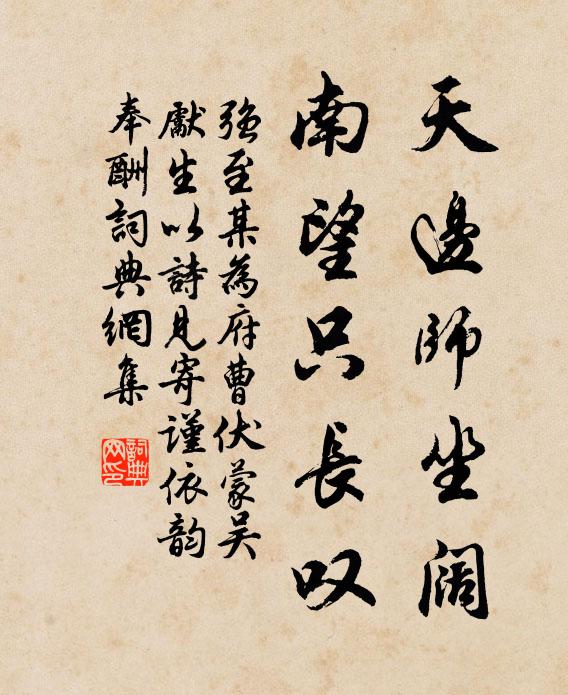 天邊師坐闊
南望只長叹
強至某為府曹伏蒙吴
獻生以詩見寄謹依韵
奉酬詞典網集
詞典
网印